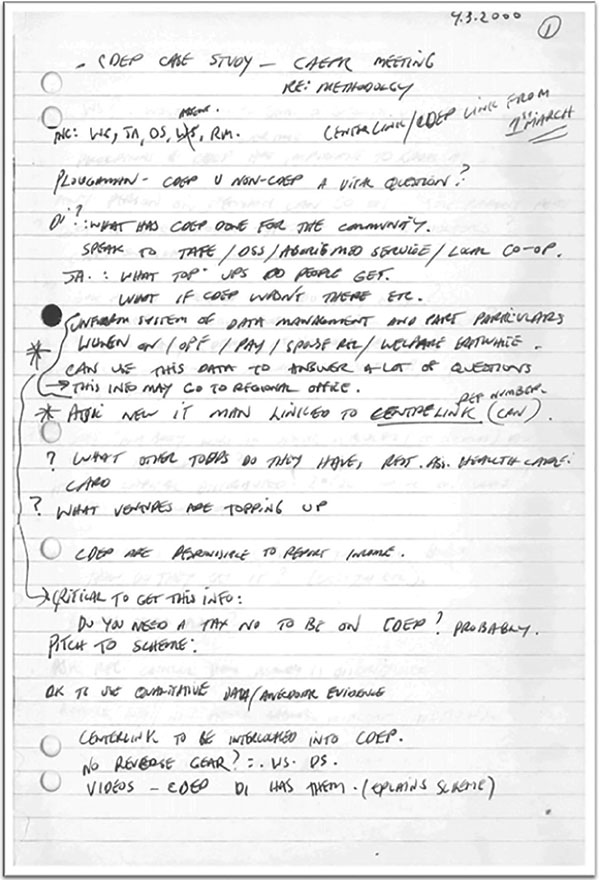 9.3.2000 ①
- CDEP CASE STUDY - CAEPR MEETING
RE: METHODOLOGY
CENTERLINK/CDEP LINK FROM
1ST MARCH
INC: WS, JA, OS, RM.
- CDEP V NON-CDEP A VITAL QUESTION?
Di?: WHAT HAS CDEP DONE FOR THE COMMUNITY.
SPEAK TO TAFE / OSS / ABORIG MED SERVICE / LOCAL CO-OP.
JA.: WHAT TOP-UPS DO PEOPLE GET.
WHAT IF CDEP WASN'T THERE ETC.
UNIFORM SYSTEM OF DATA MANAGEMENT AND PART PARTICULARS
* WOMEN ON / OFF / PAY / SPOUSE / WELFARE
CAN USE THIS DATA TO ANSWER A LOT OF QUESTIONS
→ THIS INFO MAY GO TO REGIONAL OFFICE.
REF NUMBER
* ASK NEW IT MAN LINKED TO CENTRELINK (CRN).
? WHAT OTHER DO THEY HAVE, RENT. ASS. HEALTH CARE.
CARD
? WHAT VENTURES ARE TOPPING UP
CDEP ARE RESPONSIBLE TO REPORT INCOME.
→ CRITICAL TO GET THIS INFO:
DO YOU NEED A TAX NO TO BE ON CDEP? PROBABLY.
PITCH TO SCHEME:
OK TO USE QUALITATIVE DATA/ANECDOT EVIDENCE
CENTERLINK TO BE INTERLOCKED INTO CDEP.
NO REVERSE GEAR? =. WS. DS.
VIDEOS - CDEP DI HAS THEM. (EXPLAINS SCHEME)